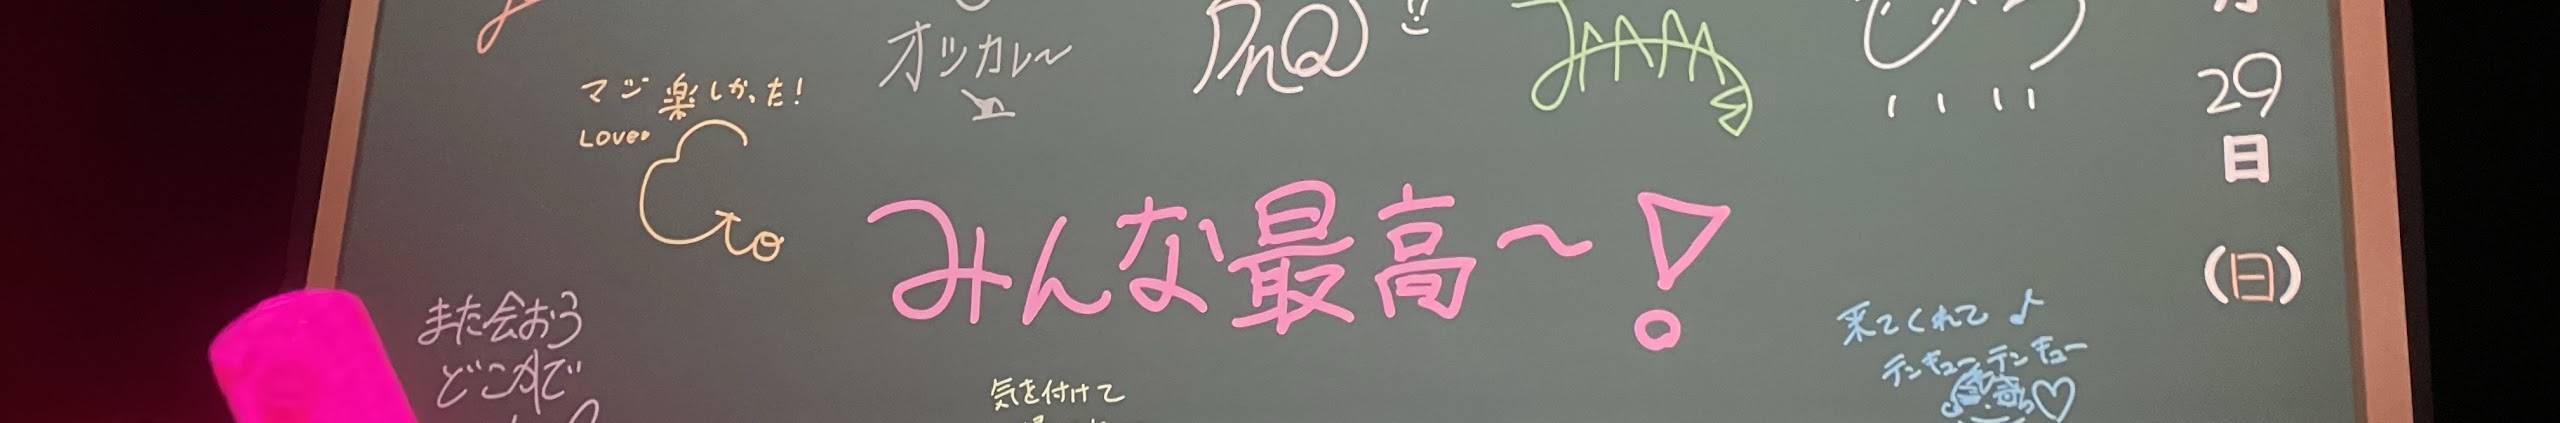 オツカレ〜
マジ楽しかった!
LOVE
みんな最高〜!
また会おう
どこかで
気を付けて
来てくれて♪
テンキューテンキュー
29
日
(日)